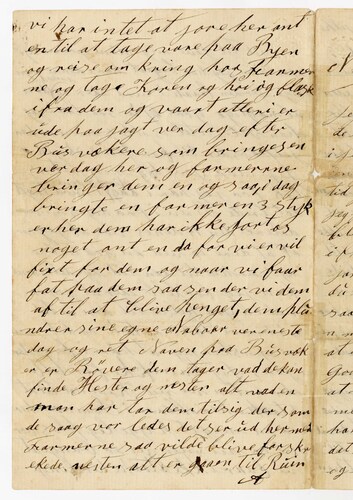 vi har intet at jore her ant
en til at tage vare paa Byen
og reise om kring hos Farmer
ne og tage Koren og hei og flæsk
ifra dem og vaart atleri er
ude paa jagt ver dag efter
Busvækere som bringes en
ver dag her og farmerne
bringer dem en og saa i dag
bringte en farmer en 3 styk
er her dem har ikke fort os
noget ant en da for vi er vil
fixt for dem og naar vi faar
fat paa dem saa sender vi dem
af til at blive henget, dem plü
ndrer sine egne Naboer vereneste
dag og ret Naven paa Busvæk
er er Rövere dem tager vad de kan
finde Hester og nesten alt vad en
man har tar dem til sig der som
de saag vor ledes det ser üd her met
Farmerne saa vilde blive forskr
ekede nesten alt er gaaen til Ruin